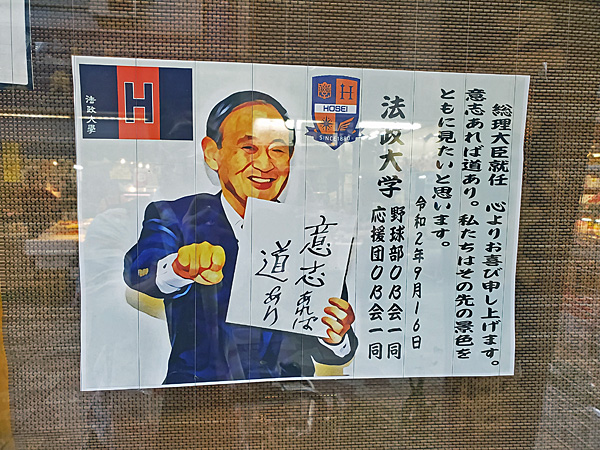 総理大臣就任　心よりお喜び申し上げます。
意志あれば道あり。私たちはその先の景色を
ともに見たいと思います。
令和2年9月16日
法政大学
野球部OB会一同
応援団OB会一同
HOSEI
SINCE 1880
H
H
法政大學
意志あれば
道あり